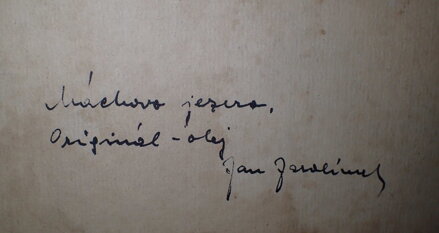 Máchovo jezero,
Originál - olej
Jan